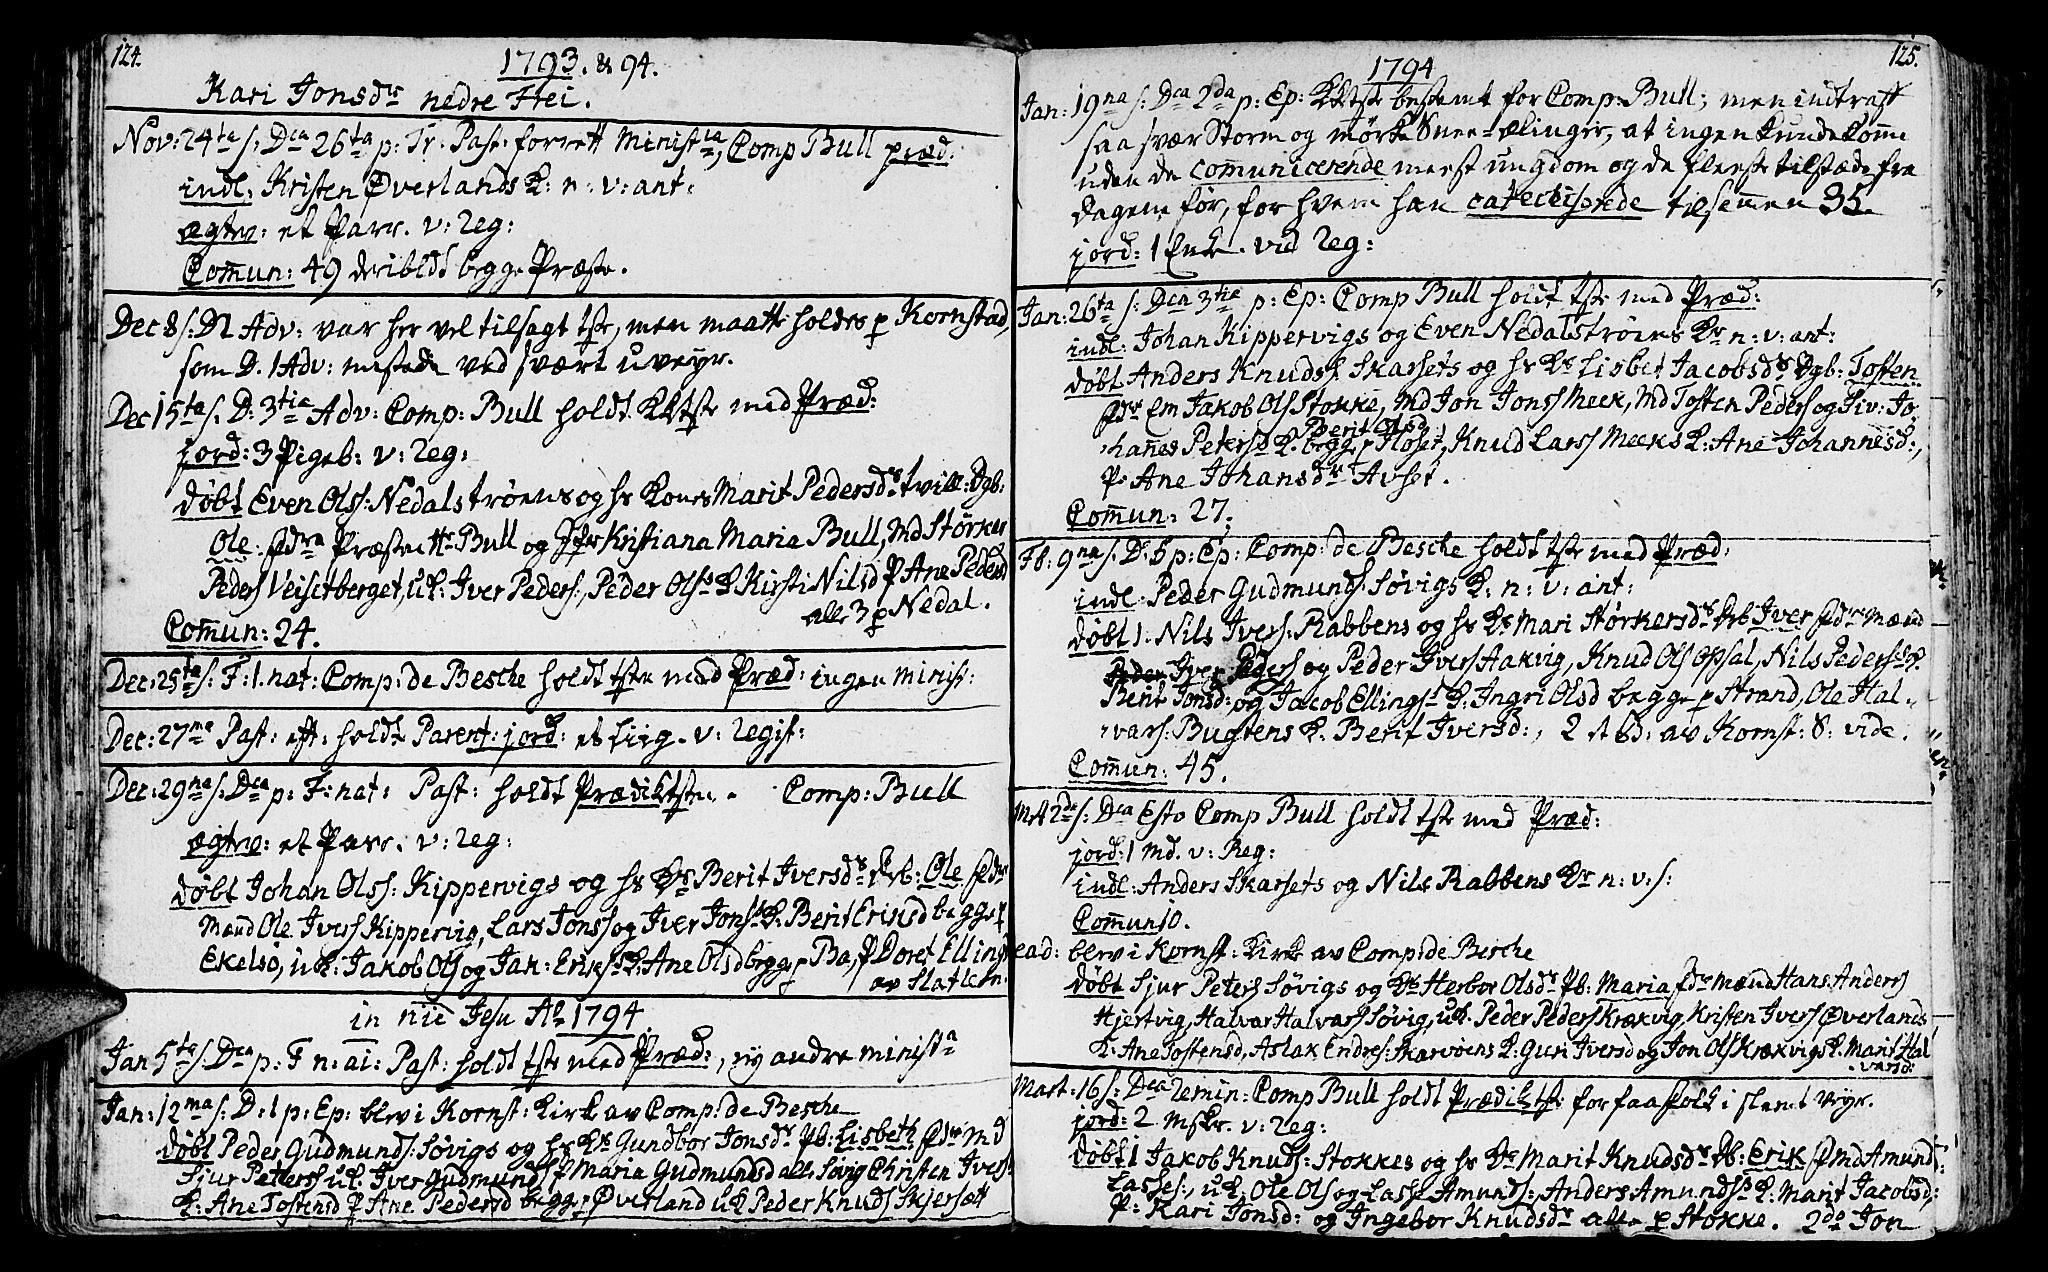 124.
1793. & 94.
Kari Jonsdr nedre Frei.
Nov: 24ta s: Dca 26ta p: Tr: Past: forrett Ministia, Comp Bull præd:
indl: Kristen Øverlands K: n: v: ant:
ægtev: et Parr. v: Reg:
Com̅un: 49 deriblt begge Præste.
Dec 8 s: D2 Adv: var her vel tilsagt tste, men maatte holdes p Kornstad,
som D. 1 Adv: mistede ved svært uveyr.
Dec 15ta s: D: 3tia Adv: Comp: Bull holdt tste med Præd:
jord: 3 Pigeb: v: Reg:
døbt Even Olss: Nedalstrøens og hs Kones Marit Pedersdrs tvill: Dgb:
Ole. fdra Præsten Hr Bull og Jfr Kristiana Maria Bull, Md Størker
Peders Veisetberget, uk: Iver Peders:, Peder Olss K Kirsti Nilsd P Ane Pedersd
alle 3 p Nedal.
Com̅un: 24.
Dec: 25ta s: F: 1. nat: Comp: de Besche holdt tste med Præd: ingen minist:
Dec: 27ma Past: eft: holdt Parent: jord: et Liig. v: Regist:
Dec: 29na s: Dca p: F: nat: Past: holdt Prædiktste. Comp: Bull
ægtev: et Parr. v: Reg:
døbt Johan Olss: Kippervigs og hs Ks Berit Iversdrs Drb: Ole fdr
Mænd Ole Ivers Kippervig, Lars Jonss og Iver Jonss K. Berit Eriksd begge p
Ekelsö, uk: Jakob Ols og Jak: Eriks K: Ane Olsd begge p Ba, P Doret Ellings
av Slatlem.
in nie Jesu Ao 1794
Jan 5ta s: Dca p: F n: ai: Past: holdt tste med Præd:, ey andre minista
Jan: 12ma s: D: 1 p: Ep: blev i Kornst: Kirke av Comp: de Besche
døbt Peder Gudmunds: Søvigs og hs Ks Gundbor Jonsdrs Pb: Lisbeth fdre Md
Sjur Peterss uk: Iver Gudmunds P Maria Gudmundsd alle Søvig Christen Ivers
K: Ane Tostensd P Ane Pedersd begge p Øverland uk Peder Knuds Skjerset
125.
1794
Jan: 19na s: Dca 2da p: Ep: tste bestemt for Comp: Bull; men indtraf
saa svær Storm og mörke Snee-elinger, at ingen kunde kom̅e
uden de com̅unicerende meest ungdom og de fleeste tilstæde fra
dagene før, for hvem han catechiserede tilsem̅en 35.
jord: 1 Enke. vid Reg:
Jan: 26ta s: Dca 3tia p: Ep: Comp Bull holdt tste med Præd:
indl: Johan Kippervigs og Even Nedalstrøens Kr n: v: ant:
døbt Anders Knuds Skarsets og hs Ks Lisbet Jacobsdrs Dgb: Tosten
fdr Em Jakob Ols Stokke, Md Jon Jonss Meek, Md Tosten Peders og Siv: Jo
Berit Olsd
han̅es Peterss K. begge p Höset, Knud Larss Meeks K: Ane Johannesd:,
P. Ane Johansdr Avset.
Com̅un: 27.
Fb: 9na s: D: 5 p: Ep: Comp: de Besche holdt tste med Præd:
indl: Peder Gudmunds: Søvigs K: n: v: ant:
døbt 1. Nils Ivers: Rabbens og hs Ks Mari Størkersdrs Drb Iver fdre Mænd
Iver Peders og Peder Ivers Aakvig, Knud Ols Opsal, Nils Peders K.
Berit Jonsd: og Jacob Ellings K. Ingri Olsd begge p Strand, Ole Hal-
vars: Bugtens K. Berit Iversd:, 2 et B: av Kornst: S: vide.
Com̅un: 45.
Mrt 2da s: Dca Esto Comp Bull holdt tste med Præd:
jord: 1 Md. v: Reg:
indl: Anders Skarsets og Nils Rabbens Kr n: v: s:
Com̅un 10.
ead: blev i Kornst: Kirke av Comp: de Besche
døbt Sjur Peters Søvigs og Ks Herbor Olsdrs Pb: Maria fdre Mænd Hans Anders
Hjertvig, Halvar Halvarss Søvig, uk. Peder Peders Krækvig, Kristen Ivers Øverlands
K: Ane Tostensd, Aslak Endres: Skarvöens K: Guri Iversd og Jon Ols Krækvigs K. Marit Hal
varsd:
Mart: 16 s: Dca Remin: Comp Bull holdt Prædiktste for faa folk i slemt Veyr.
jord: 2 Mskr. v: Reg:
døbt 1 Jakob Knuds: Stokkes og hs Ks Marit Knudsdrs Db: Erik f Md Amund
Lasses:, uk Ole Ols og Lasse Amunds:, Anders Amunds K: Marit Jacobsd;
P: Kari Jonsd: og Ingebor Knudsdr alle p Stokke. 2do Jon